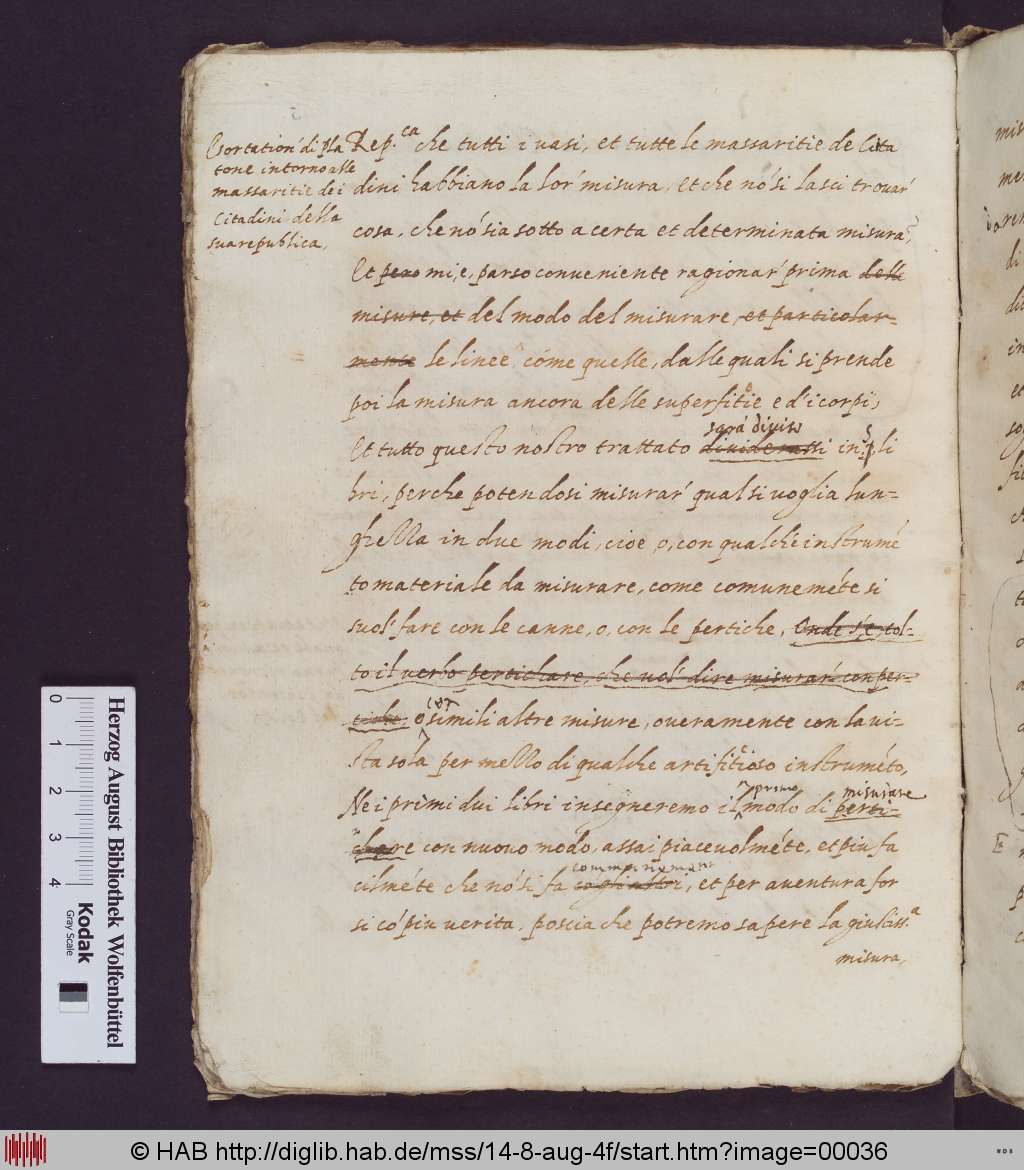 Esortation' di Pla
tone intorno alle
massaritie dei
Citadini della
sua republica.
Rep.ca che tutti i uasi, et tutte le massaritie de Citta
dini habbiano la lor' misura, et che nó si lasci trouar'
cosa, che nó sia sotto a certa et determinata misura,
Et pero mi, e, parso conueniente ragionar' prima delle
misure, et del modo del misurare, et particolar-
mente le linee, come quelle, dalle quali si prende
poi la misura ancora delle superfitie e d'i corpi,
sará diuiso
Et tutto questo nostro trattato in 5 li
bri, perche potendosi misurar' qual si uoglia lun=
ghezza in due modi, cioe, o, con qualche instrumé
to materiale da misurare, come comuneméte si
suol' fare con le canne, o, con le pertiche, Onde s'é tol-
to il uerbo pertichare, che uol' dire misurar' con per-
tiche, o simili altre misure, oueramente con la ui-
sta sola per mezzo di qualche artifitioso instruméto,
primo misurare
Ne i primi dui libri insegneremo il modo di perti-
chare con nuouo modo, assai piaceuolméte, et piu fa
cilméte che nó si fa, et per auentura for
si có piu uerita, poscia che potremo sapere la giustiss.a
misura,
0 1 2 3 4
Kodak
Gray Scale
Herzog August Bibliothek Wolfenbüttel
© HAB http://diglib.hab.de/mss/14-8-aug-4f/start.htm?image=00036